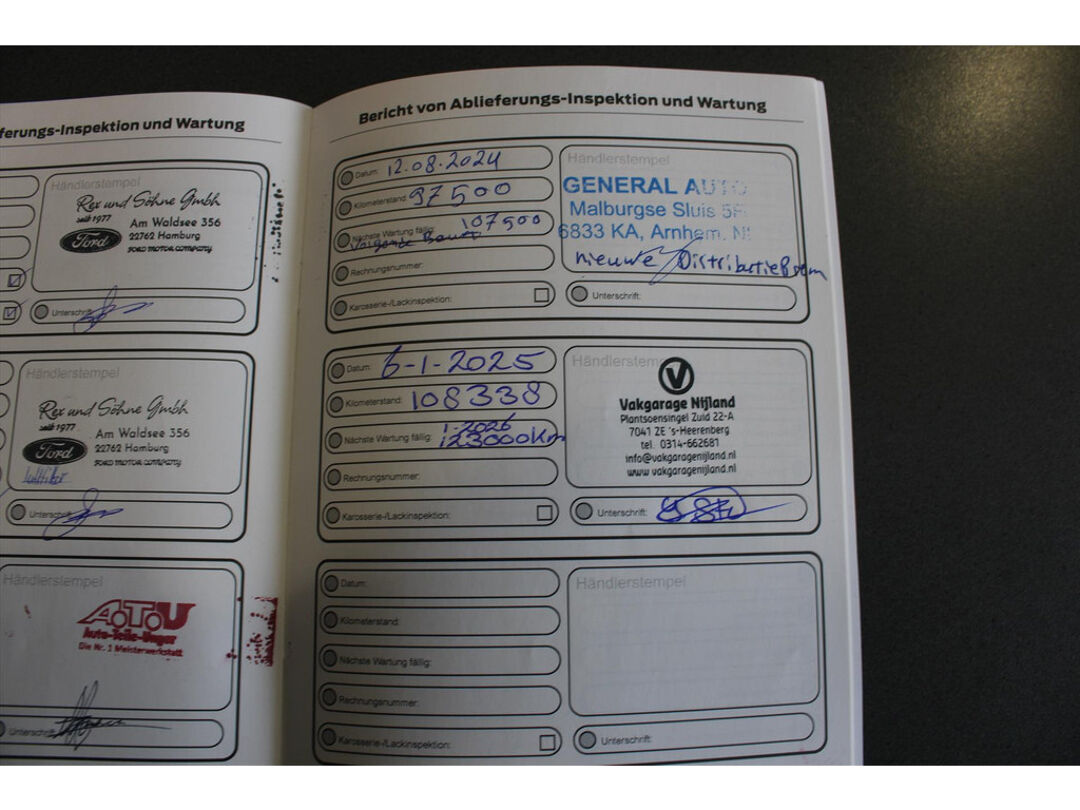 ferungs-Inspektion und Wartung
Händlerstempel
Rex und Söhne Gmbh
seit 1977
Am Waldsee 356
Ford
22762 Hamburg
FORD MOTOR COMPANY
Unterschrift:
Händlerstempel
Rex und Söhne Gmbh
seit 1977
Am Waldsee 356
Ford
22762 Hamburg
FORD MOTOR COMPANY
Unterschrift:
Händlerstempel
A.T.U
Auto-Teile-Unger
Die Nr. 1 Meisterwerkstatt
Unterschrift:
Bericht von Ablieferungs-Inspektion und Wartung
Datum: 12.08.2024
Kilometerstand: 97500
Nächste Wartung fällig: 107500
Volgende Beurt
Rechnungsnummer:
Karosserie-/Lackinspektion:
Händlerstempel
GENERAL AUTO
Malburgse Sluis
6833 KA, Arnhem.
nieuwe Distributieriem
Unterschrift:
Datum: 6-1-2025
Kilometerstand: 108338
Nächste Wartung fällig: 1-2026
123000km
Rechnungsnummer:
Karosserie-/Lackinspektion:
Händlerstempel
Vakgarage Nijland
Plantsoensingel Zuid 22-A
7041 ZE 's-Heerenberg
tel. 0314-662681
info@vakgaragenijland.nl
www.vakgaragenijland.nl
Unterschrift:
Datum:
Kilometerstand:
Nächste Wartung fällig:
Rechnungsnummer:
Karosserie-/Lackinspektion:
Händlerstempel
Unterschrift: